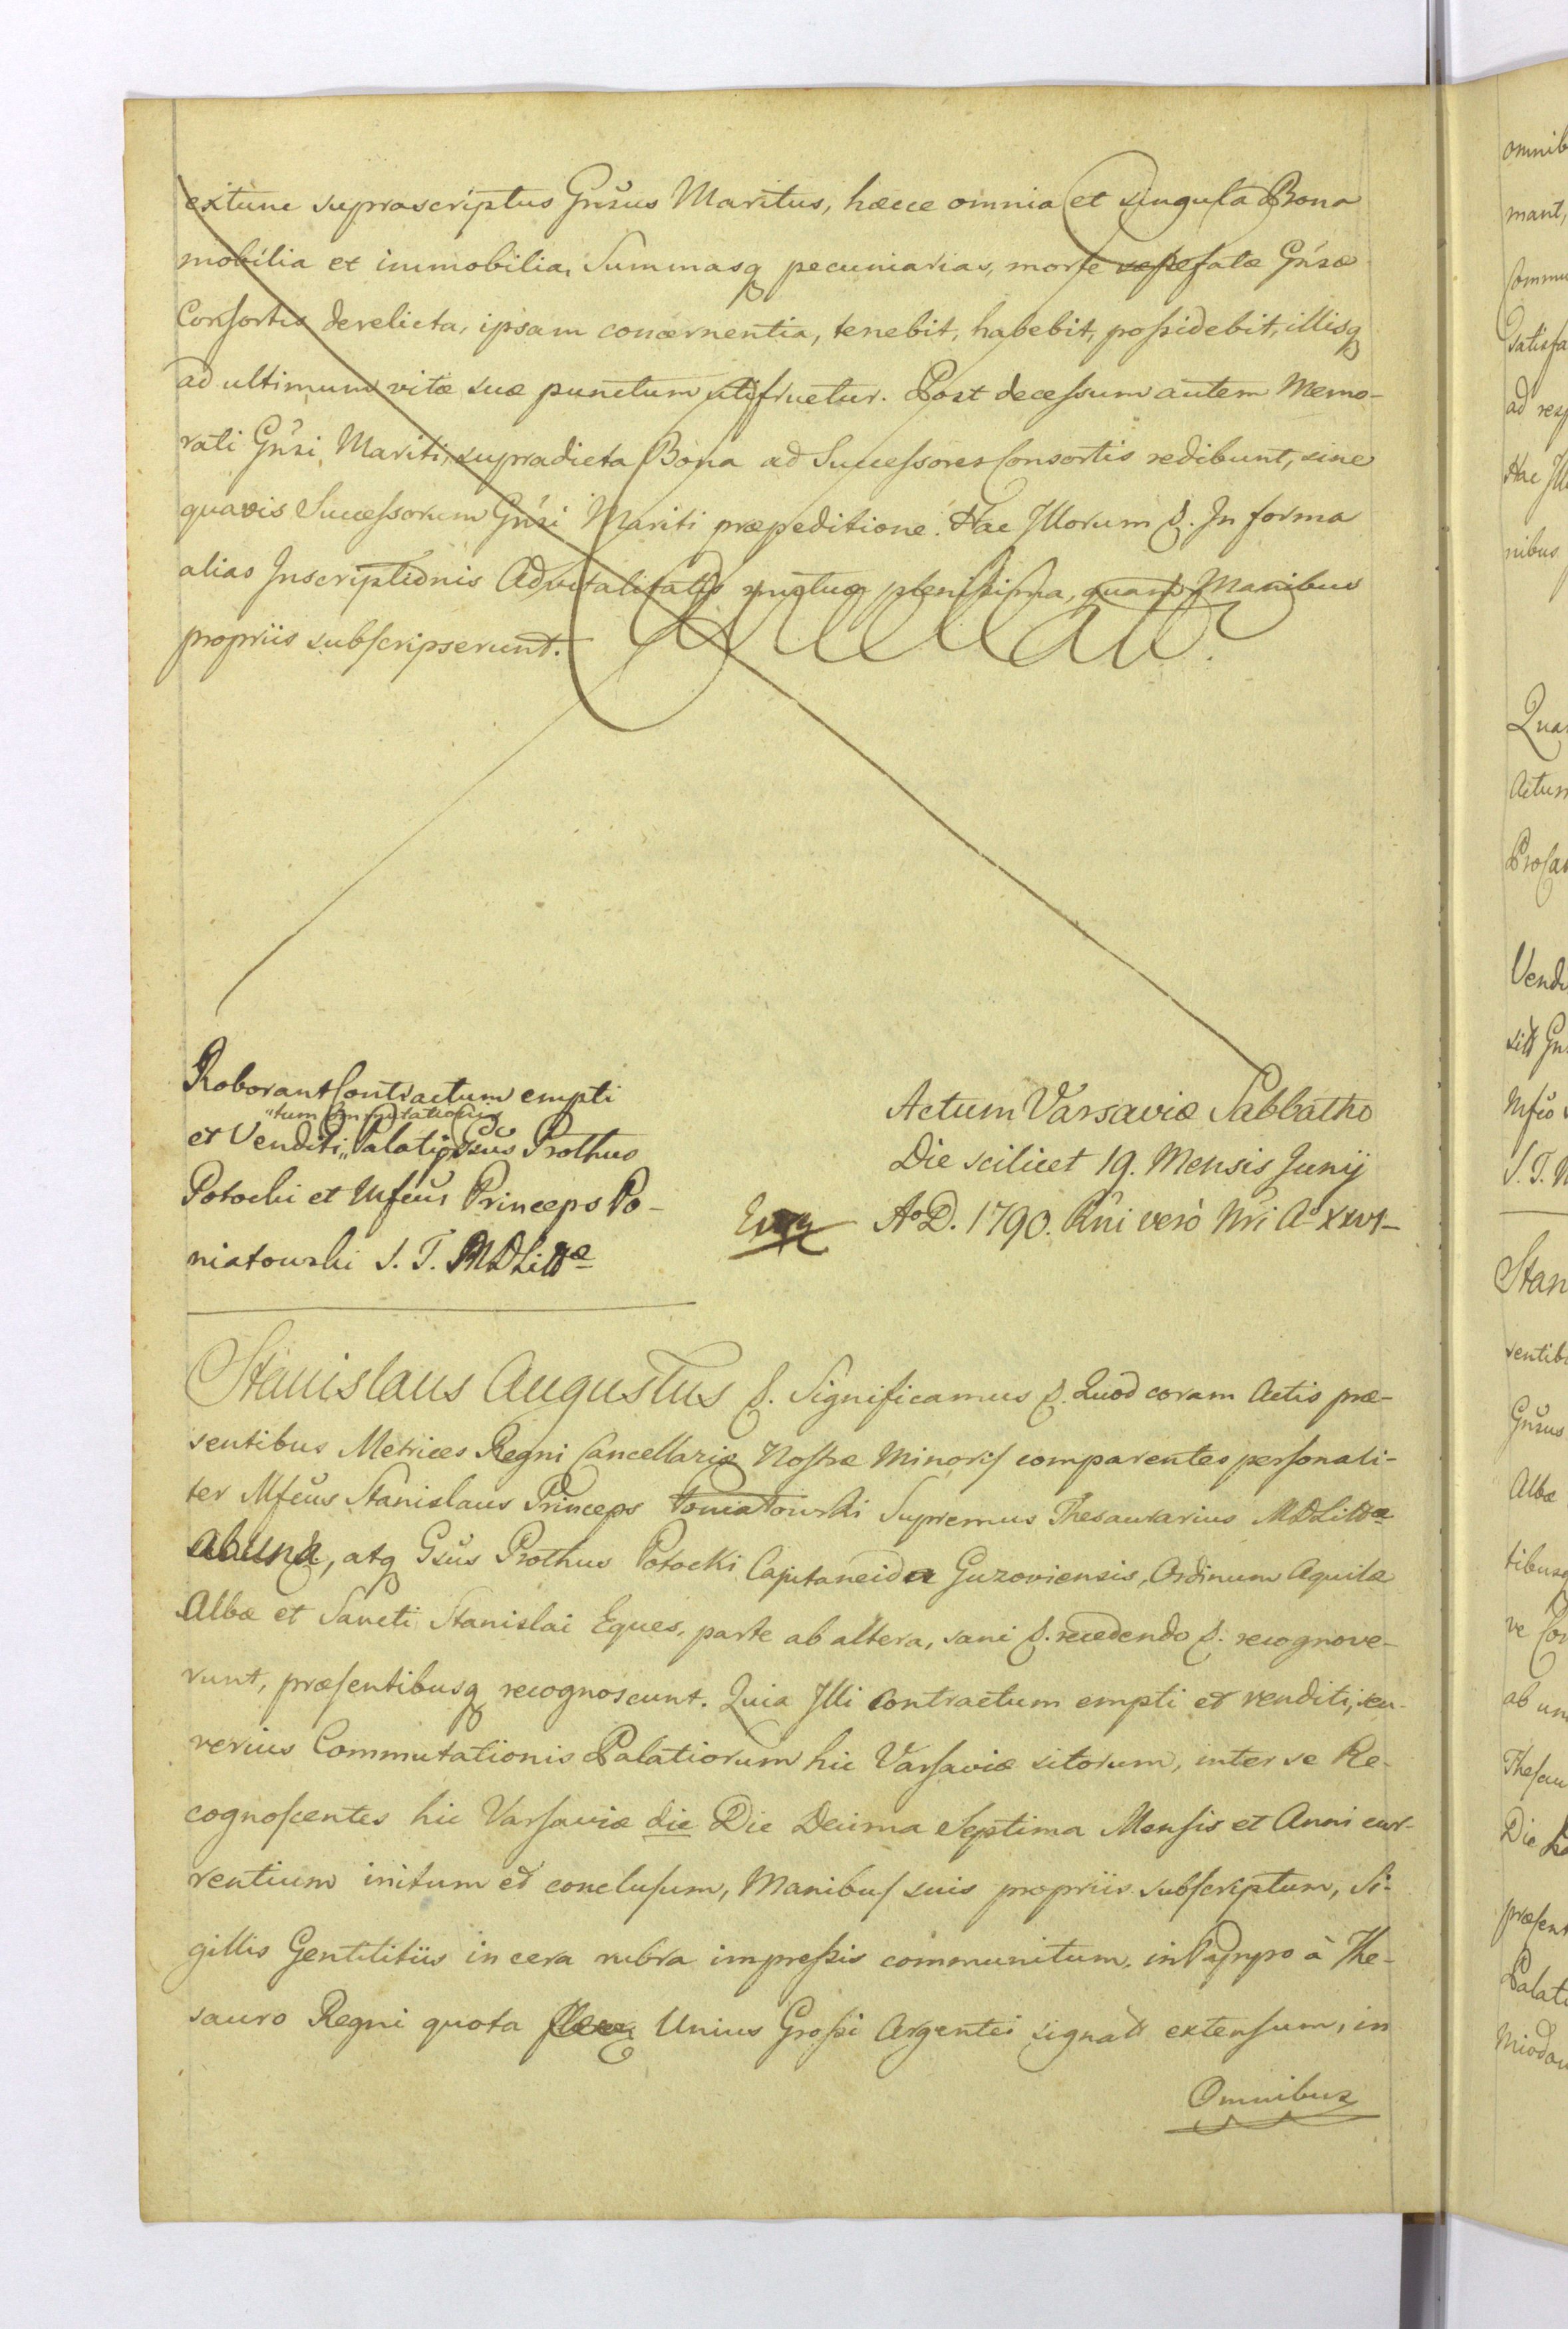 extunc suprascriptus Gnsus Maritus, hæcce omnia et singula Bona
mobilia et immobilia, Summasq pecuniarias, morte sæpefatæ Gnsæ
Consortis derelicta, ipsam concernentia, tenebit, habebit, possidebit, illisq
ad ultimum vitæ suæ punctum utifruetur. Post decessum autem Memo-
rati Gnsi Mariti, supradicta Bona ad Successores Consortis redibunt, sine
quavis Successorum Gnsi Mariti præpeditione. Hac Illorum &. In forma
alias Inscriptionis Advitalitatis mutuæ plenissima, quam Manibus
propriis subscripserunt.
Roborant Contractum empti
„tum Commutationis
et Venditi „ Palatii Gsus Prothus
Potocki et Mfcus Princeps Po-
niatowski S. T. MDLittæ
Actum Varsaviæ Sabbatho
Die scilicet 19. Mensis Junij
Ao D. 1790. Rni verò Nri Ao XXVI
Stanislaus Augustus &. Significamus &. Quod coram Actis præ-
sentibus Metrices Regni Cancellariæ Nostræ Minoris comparentes personali-
ter Mfcus Stanislaus Princeps Poniatowski Supremus Thesaurarius MDLittæ
ab una, atq Gsus Prothus Potocki Capitaneida Guzoviensis, Ordinum Aquilæ
Albæ et Sancti Stanislai Eques, parte ab altera, sani &. recedendo &. recognove-
runt, præsentibusq recognoscunt. Quia Illi Contractum empti et venditi, seu
verius Commutationis Palatiorum hic Varsaviæ sitorum, inter se Re-
cognoscentes hic Varsaviæ die Die Decima Septima Mensis et Anni cur-
rentium initum et conclusum, Manibus suis propriis subscriptum, Si-
gillis Gentilitiis in cera rubra impressis communitum, in Papyro à The-
sauro Regni quota Unius Grossi Argentei signatt extensum, in
Omnibus